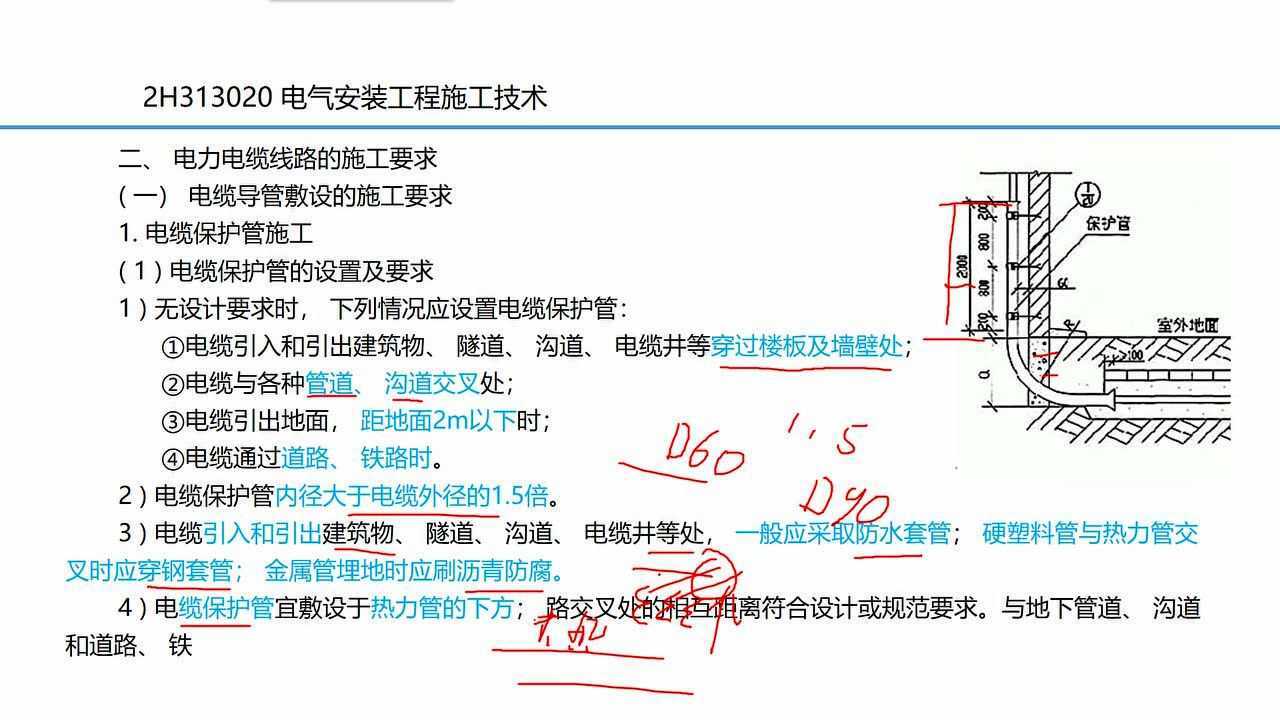 2H313020 电气安装工程施工技术
二、 电力电缆线路的施工要求
(一) 电缆导管敷设的施工要求
1. 电缆保护管施工
(1) 电缆保护管的设置及要求
1) 无设计要求时, 下列情况应设置电缆保护管:
①电缆引入和引出建筑物、 隧道、 沟道、 电缆井等穿过楼板及墙壁处;
②电缆与各种管道、 沟道交叉处;
③电缆引出地面, 距地面2m以下时;
④电缆通过道路、 铁路时。
2) 电缆保护管内径大于电缆外径的1.5倍。
3) 电缆引入和引出建筑物、 隧道、 沟道、 电缆井等处, 一般应采取防水套管; 硬塑料管与热力管交
叉时应穿钢套管; 金属管埋地时应刷沥青防腐。
4) 电缆保护管宜敷设于热力管的下方; 路交叉处的相互距离符合设计或规范要求。与地下管道、 沟道
和道路、 铁
200
800
2000
800
200
a
保护管
室外地面
>100
D60
1.5
D90